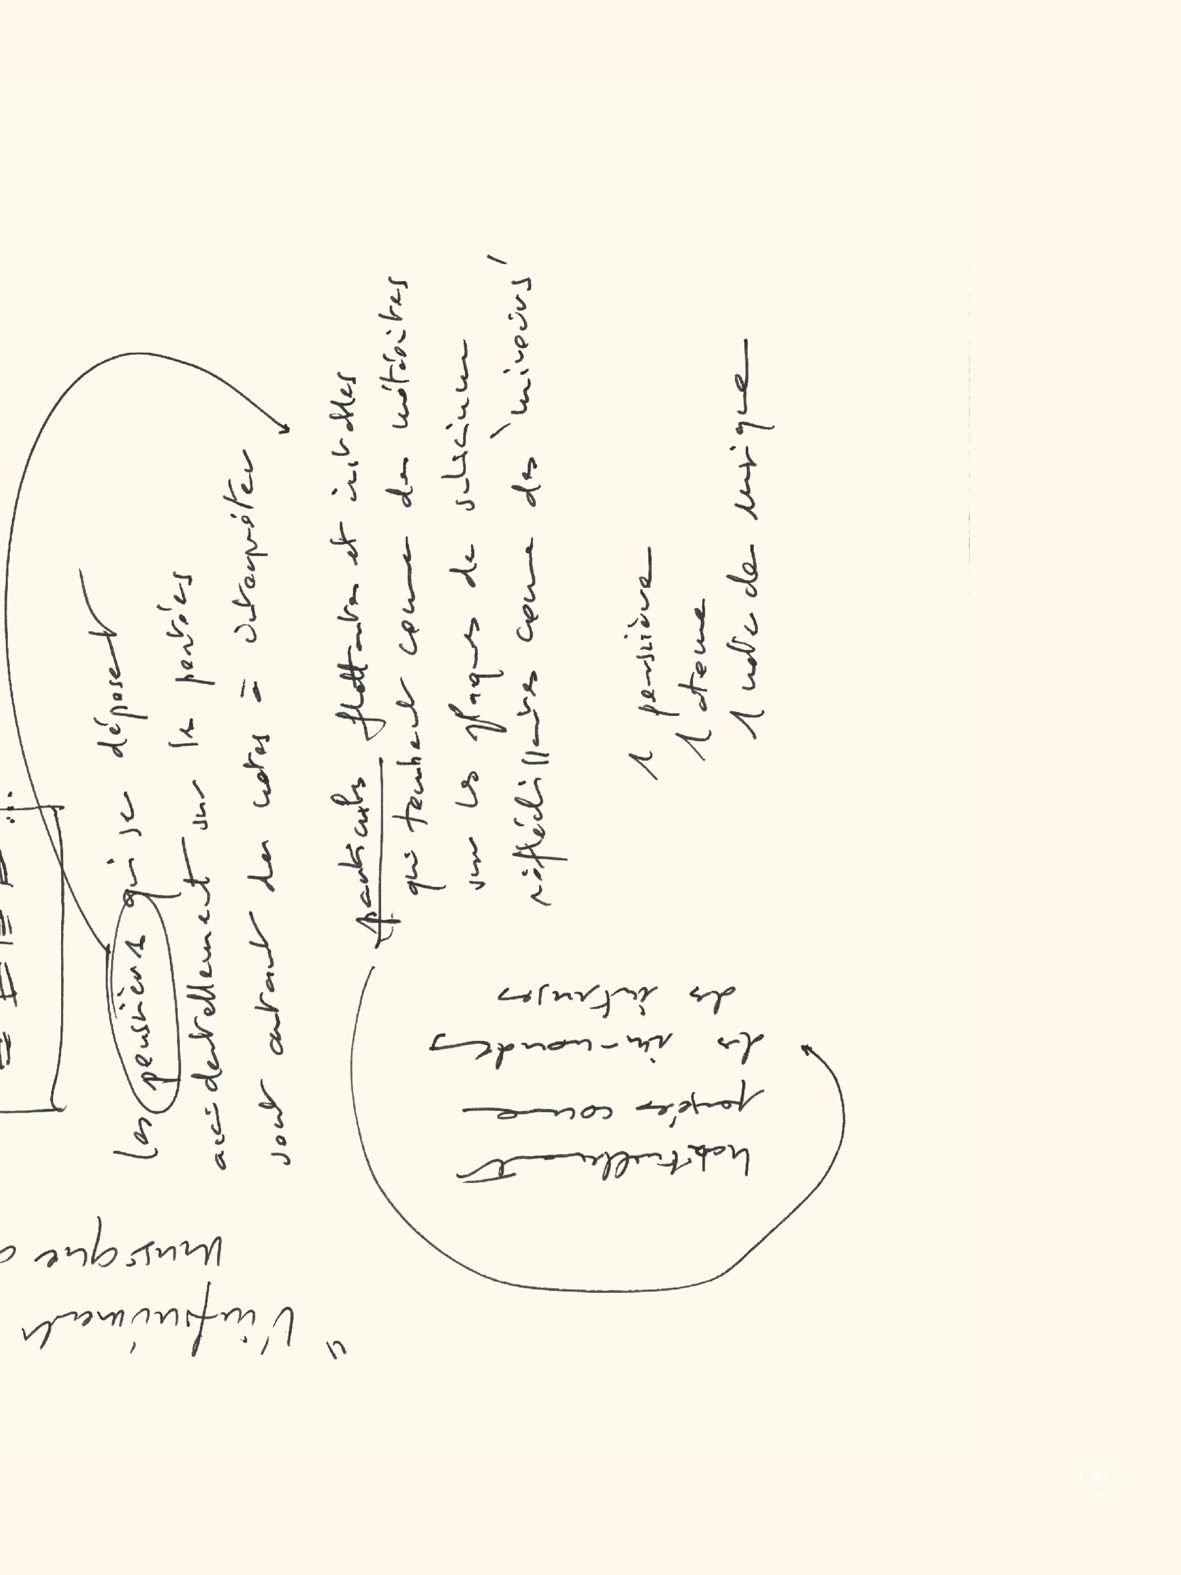 Les poussières qui se déposent
accidentellement sur les portées
sont autant de notes à interpréter
particules flottantes et instables
qui tombent comme des météorites
sur les plaques de silicium
réfléchissantes comme des "miroirs"
1 poussière
1 atome
1 note de musique
habituellement
jugées comme
des im-mondes
des intruses
"L'infiniment
musique
47